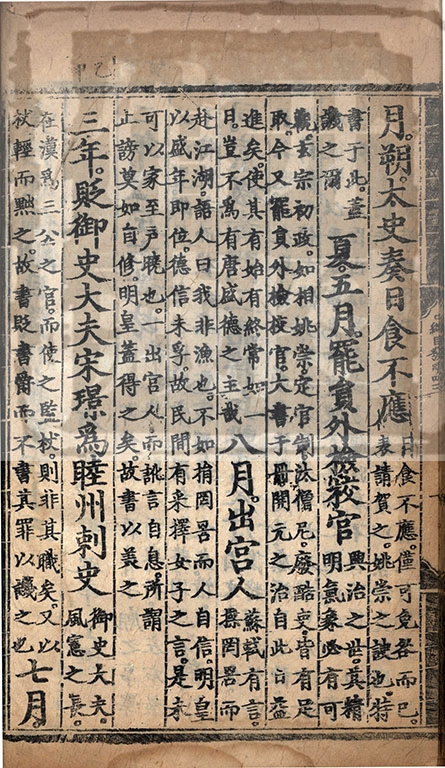 月。朔太史奏日食不應
日食不應。僅可免咎而已。
表請賀之。姚崇之諛也。特
書于此。蓋
譏之爾
夏。五月。罷員外檢校官
興治之世。其精
明氣象必有可
觀。玄宗初政。如相姚崇定官制汰僧尼。廢酷吏。皆有足
取。今又罷員外檢校官。大書于冊。開元之治自此日益
進矣。使其有始有終常如一
日。豈不爲有唐盛德之主哉
八月。出宮人
蘇軾有言。
操罔罟而
赴江湖。語人曰我非漁也。不如捐罔罟而人自信。明皇
以盛年即位。德信未孚。故民間有采擇女子之言。是未
可以家至戶曉也。一出宮人而訛言自息。所謂
止謗莫如自修。明皇蓋得之矣。故書以美之
三年。貶御史大夫宋璟爲睦州刺史
御史大夫。
風憲之長。
在漢爲三公之官。而使之監杖。則非其職矣。又以
杖輕而黜之。故書貶書爵而不書其罪以譏之也
七月。